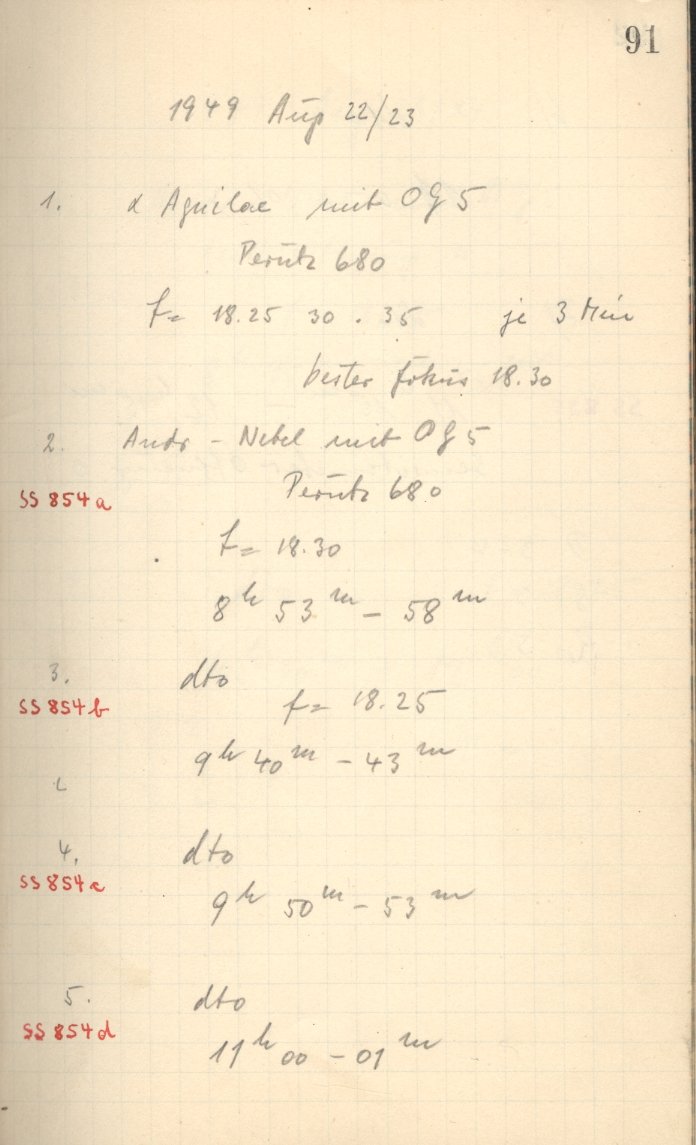 91
1949 Aug 22/23
1. α Aquilae mit OG 5
Perutz 680
f = 18.25 30 . 35 je 3 Min
bester Fokus 18.30
2. Andr - Nebel mit OG 5
SS 854a
Perutz 680
f = 18.30
8h 53m - 58m
3. dto
SS 854b
f = 18.25
9h 40m - 43m
4. dto
SS 854c
9h 50m - 53m
5. dto
SS 854d
11h 00 - 01m